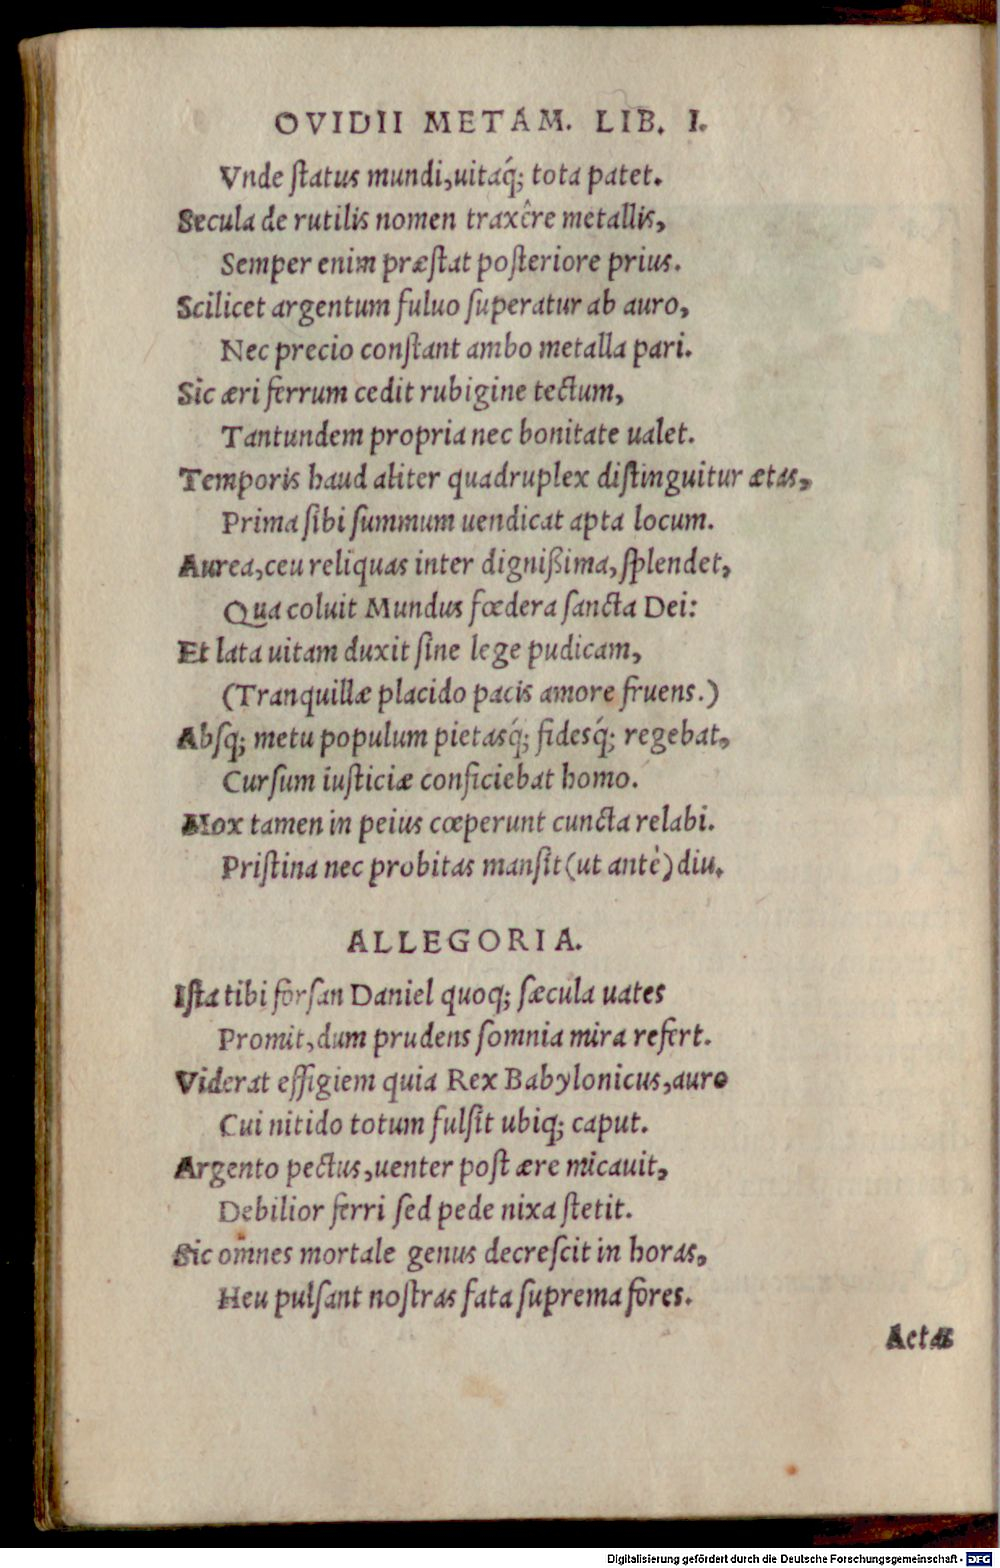 OVIDII METAM. LIB. I.
Vnde ſtatus mundi,uitaq́; tota patet.
Secula de rutilis nomen traxêre metallis,
Semper enim præſtat poſteriore prius.
Scilicet argentum fuluo ſuperatur ab auro,
Nec precio conſtant ambo metalla pari.
Sic æri ferrum cedit rubigine tectum,
Tantundem propria nec bonitate ualet.
Temporis haud aliter quadruplex diſtinguitur ætas,
Prima ſibi ſummum uendicat apta locum.
Aurea,ceu reliquas inter dignißima,ſplendet,
Qua coluit Mundus fœdera ſancta Dei:
Et lata uitam duxit ſine lege pudicam,
(Tranquillæ placido pacis amore fruens.)
Abſq; metu populum pietasq́; fidesq́; regebat,
Curſum iuſticiæ conficiebat homo.
Mox tamen in peius cœperunt cuncta relabi.
Priſtina nec probitas manſit(ut antè)diu.
ALLEGORIA.
Iſta tibi forſan Daniel quoq; ſæcula uates
Promit,dum prudens ſomnia mira refert.
Viderat effigiem quia Rex Babylonicus,auro
Cui nitido totum fulſit ubiq; caput.
Argento pectus,uenter poſt ære micauit,
Debilior ferri ſed pede nixa ſtetit.
Sic omnes mortale genus decreſcit in horas,
Heu pulſant noſtras fata ſuprema fores.
Aetas
Digitalisierung gefördert durch die Deutsche Forschungsgemeinschaft - DFG